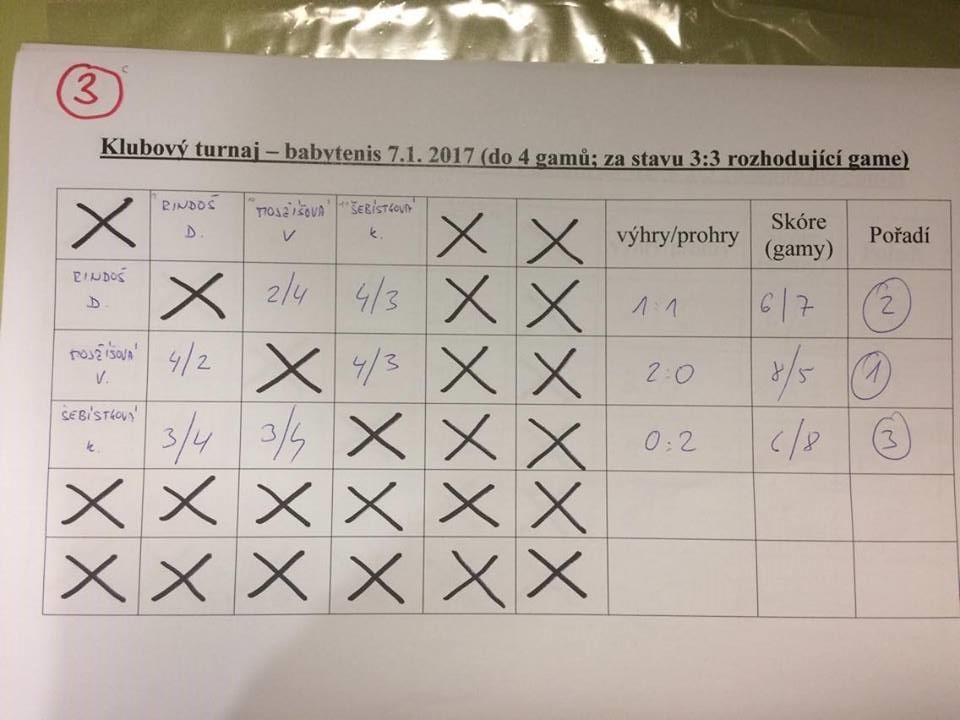 3
Klubový turnaj – babytenis 7.1. 2017 (do 4 gamů; za stavu 3:3 rozhodující game)
RINDOŠ D. ŠEBÍSTKOVÁ K. výhry/prohry Skóre (gamy) Pořadí
RINDOŠ D. 2/4 4/3 1:1 6/7 2
V. 4/2 4/3 2:0 8/5 1
ŠEBÍSTKOVÁ K. 3/4 3/4 0:2 6/8 3